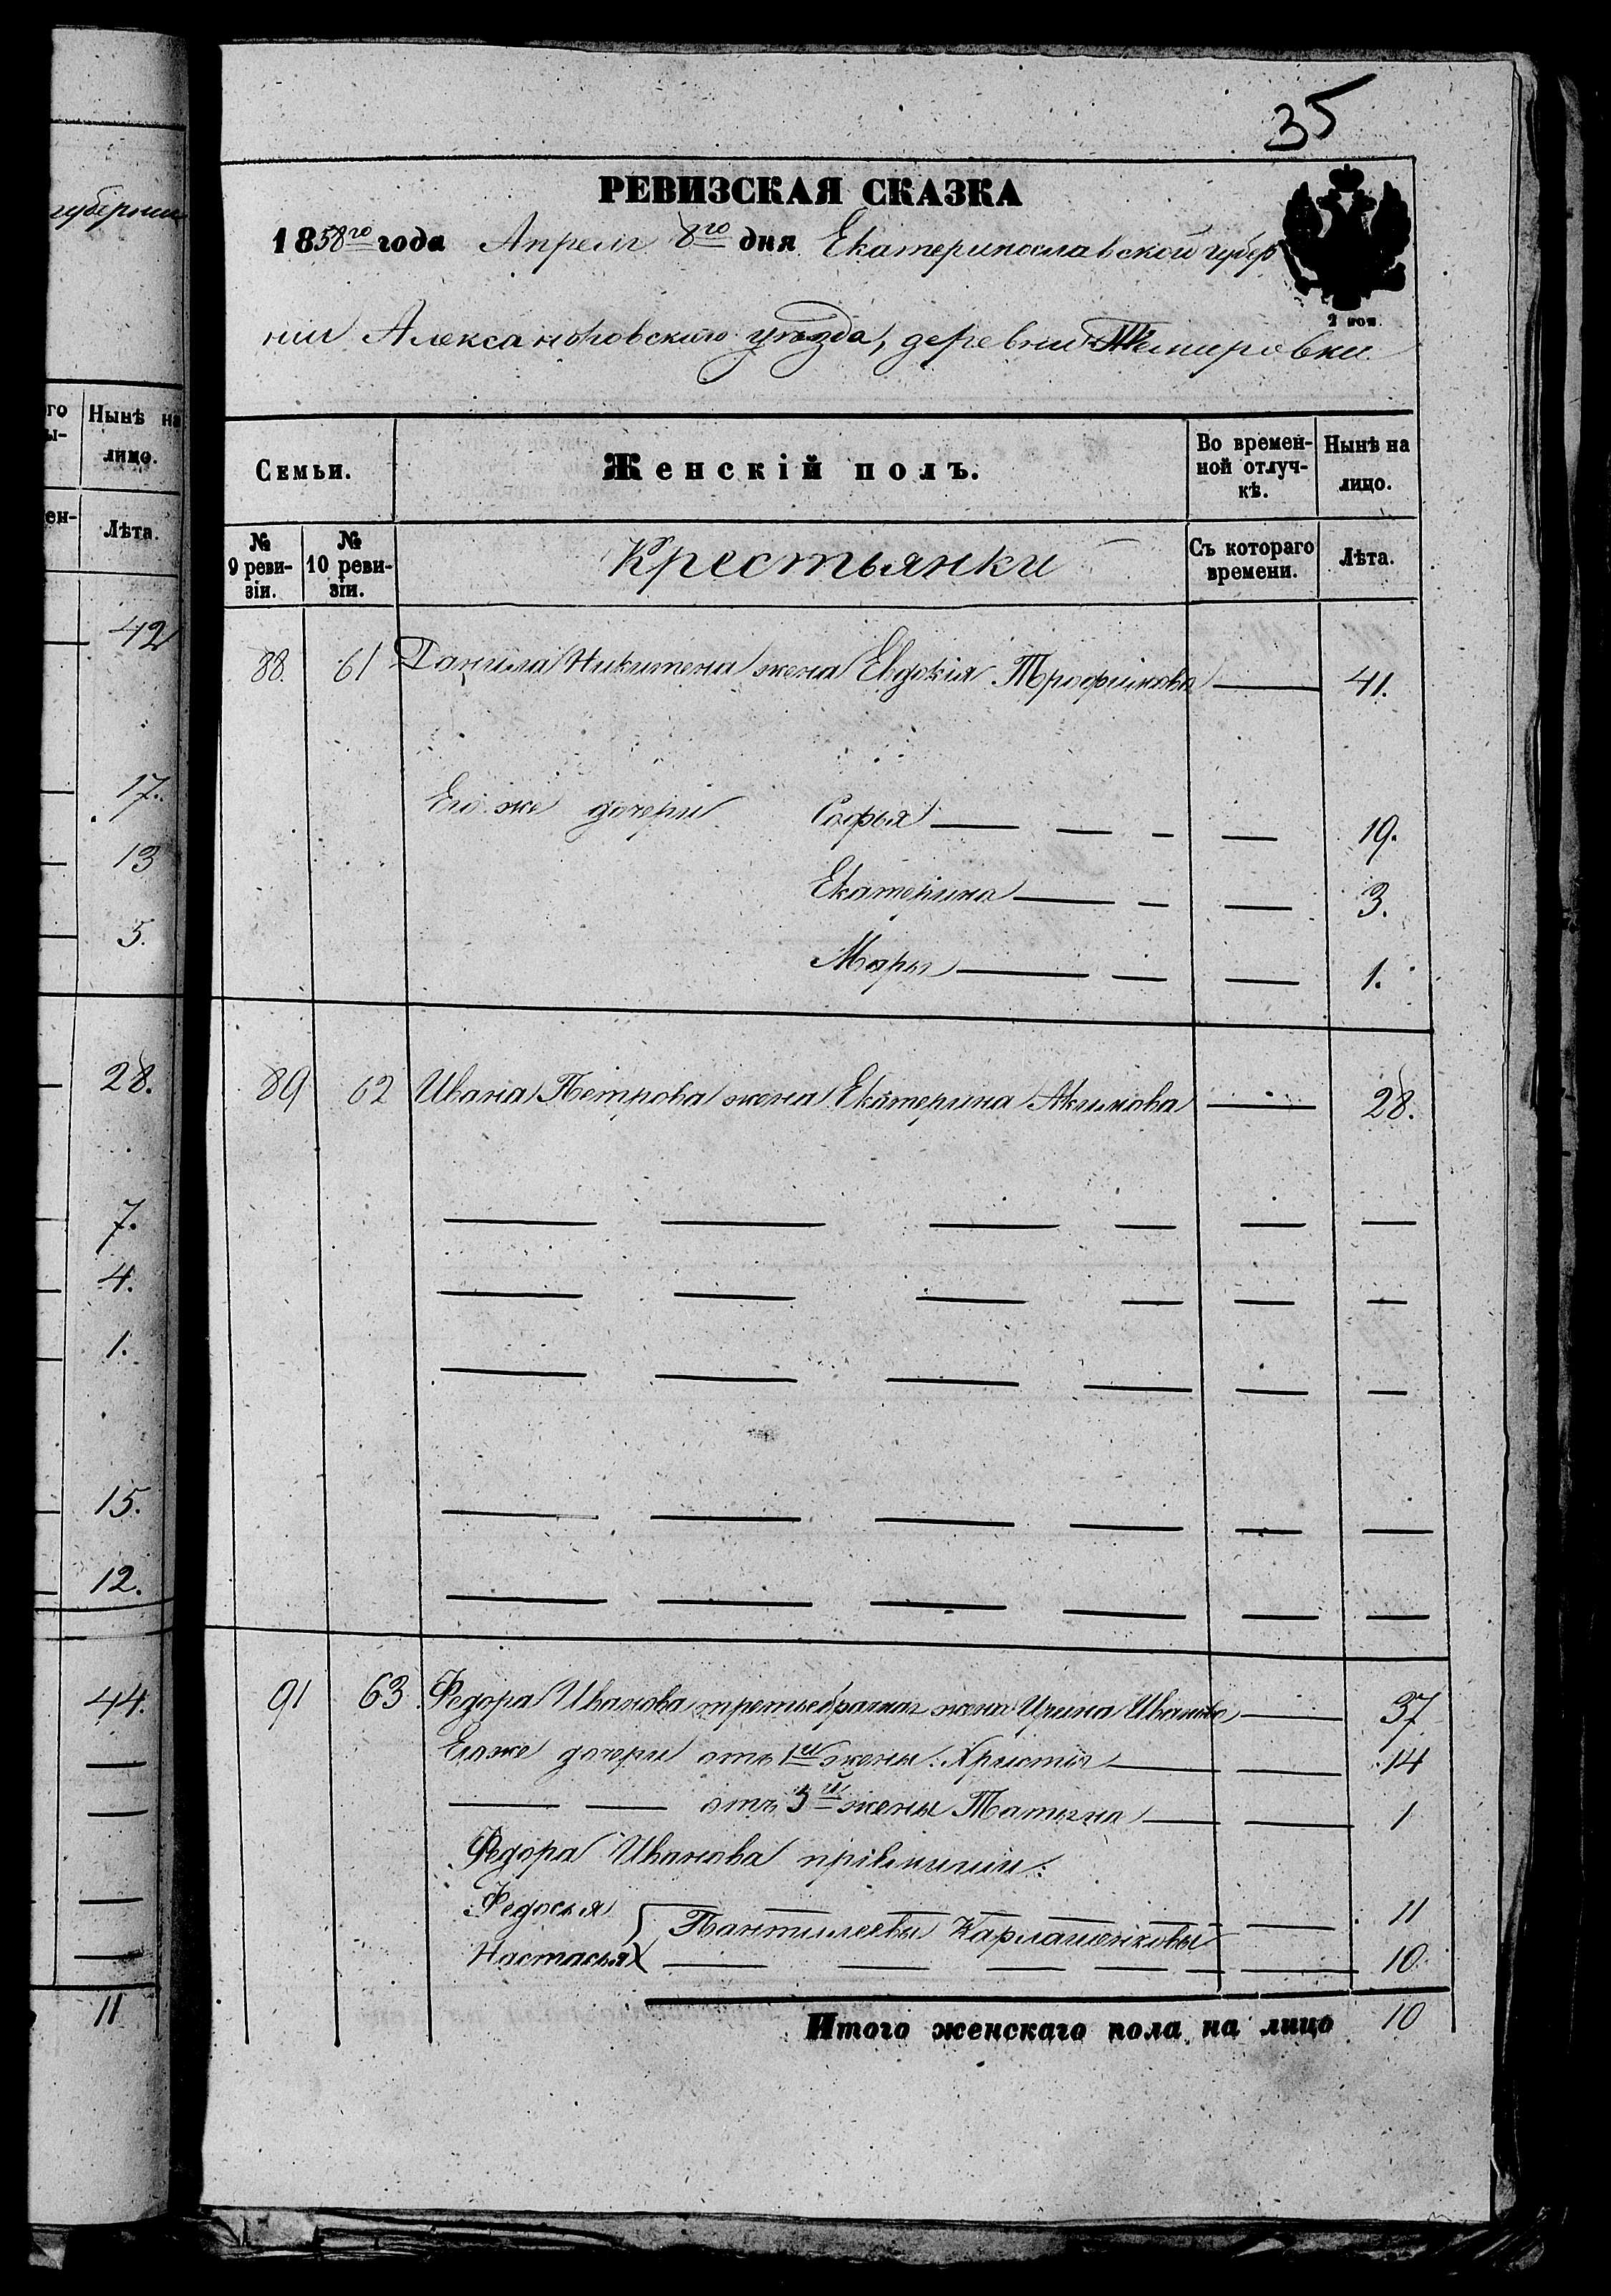 губернии
го
ы-
Нынѣ на
лицо.
ен-
Лѣта.
42
17.
13
5.
28.
7.
4.
1.
15.
12.
44.
11
35
РЕВИЗСКАЯ СКАЗКА
1858го года Апреля 8го дня Екатеринославской губер
нии Александровского уѣзда, деревни Темировки
2 коп.
Семьи.
Женскій полъ.
Во времен-
ной отлуч-
кѣ.
Нынѣ на
лицо.
№
9 реви-
зіи.
№
10 реви-
зіи.
Крестьянки
Съ котораго
времени.
Лѣта.
88. 61 Данила Никитена жена Евдокія Трофимова — 41.
Его же дочери Софья — — — — 19.
Екатерина — — — 3.
Марья — — — 1.
89 62 Ивана Петрова жена Екатерина Акимова — 28.
91 63 Федора Иванова третьебрачная жена Ирина Иванова — 37
Его же дочери отъ 1й жены: Христья — — 14
— — отъ 3й жены Татьяна — — 1
Федора Иванова пріемыши:
Федосья — — — — — — 11
Пантилеевы Карлашенковы
Настасья — — — — — — 10
Итого женскаго пола на лицо 10